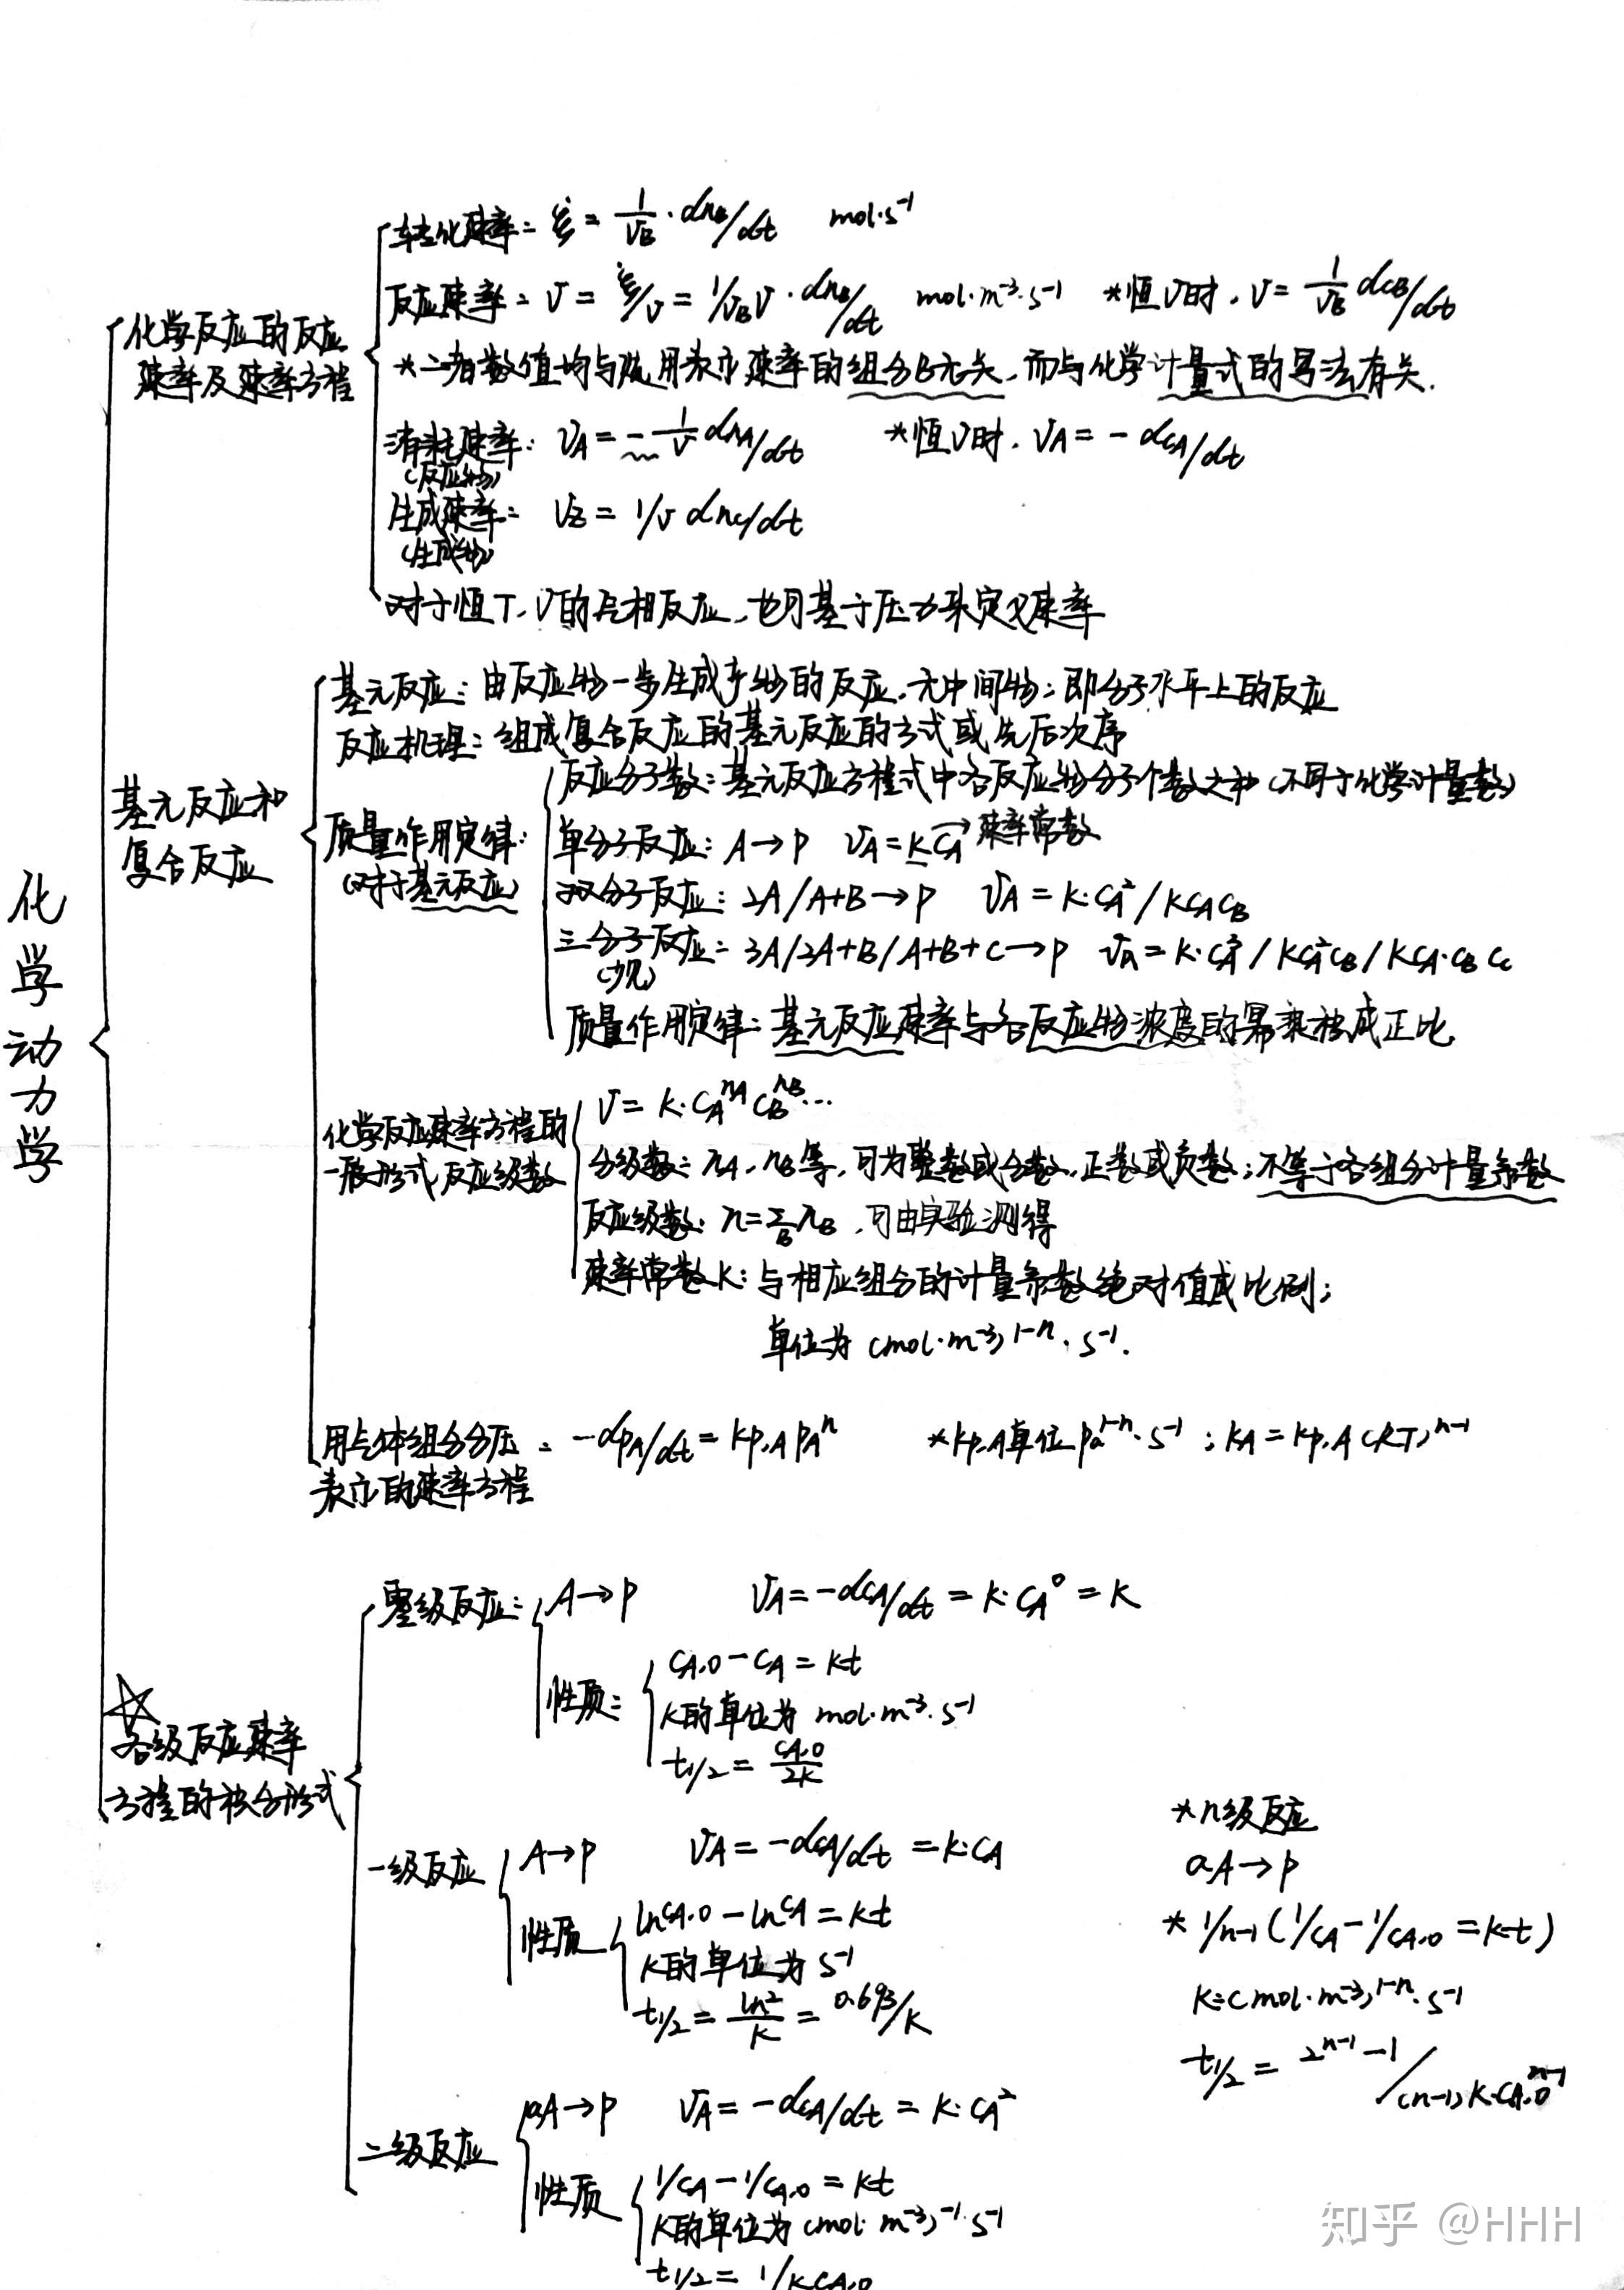 转化速率: ξ̇ = 1/νB · dnB/dt mol·s⁻¹
反应速率: v = ξ̇/V = 1/νBV · dnB/dt mol·m⁻³·s⁻¹ *恒V时, v = 1/νB dcB/dt
化学反应的反应
速率及速率方程
*二者数值均与选用表示速率的组分B无关,而与化学计量式的写法有关.
消耗速率: vA = -1/V dnA/dt *恒V时, vA = -dcA/dt
(反应物)
生成速率: vZ = 1/V dnc/dt
(生成物)
对于恒T、V的气相反应,也可基于压力来定义速率
基元反应: 由反应物一步生成产物的反应,无中间物;即分子水平上的反应
反应机理: 组成复合反应的基元反应的方式或先后次序
基元反应和
复合反应
反应分子数: 基元反应方程式中各反应物分子个数之和(不同于化学计量数)
质量作用定律:
(对于基元反应)
单分子反应: A→P vA=kcA→速率常数
双分子反应: 2A/A+B→P vA=k·cA²/kcAcB
三分子反应: 3A/2A+B/A+B+C→P vA=k·cA³/kcA²cB/kcA·cBcc
(少见)
质量作用定律: 基元反应速率与各反应物浓度的幂乘积成正比
化学动力学
化学反应速率方程的
一般形式,反应级数
v=k·cA^nA cB^nB…
分级数: nA,nB等,可为整数或分数,正数或负数;不等于各组分计量系数
反应级数: n=ΣB nB,可由实验测得
速率常数k: 与相应组分的计量系数绝对值成比例;
单位为(mol·m⁻³)^1-n·s⁻¹.
用气体组分分压
表示的速率方程
: -dpA/dt=kp,A pA^n *kp,A单位Pa^1-n·s⁻¹;kA=kp,A(RT)^n-1
☆
各级反应速率
方程的积分形式
零级反应: A→P vA=-dcA/dt=k·cA⁰=k
性质:
cA,0-cA=kt
k的单位为mol·m⁻³·s⁻¹
t1/2=cA,0/2k
一级反应 A→P vA=-dcA/dt=k·cA
性质
lncA,0-lncA=kt
k的单位为s⁻¹
t1/2=ln2/k=0.693/k
二级反应 aA→P vA=-dcA/dt=k·cA²
性质
1/cA-1/cA,0=kt
k的单位为(mol·m⁻³)⁻¹·s⁻¹
t1/2=1/kcA,0
*n级反应
aA→P
*1/n-1(1/cA-1/cA,0=kt)
k:(mol·m⁻³)^1-n·s⁻¹
t1/2=2^n-1-1/(n-1)k·cA,0^n-1
知乎 @HHH